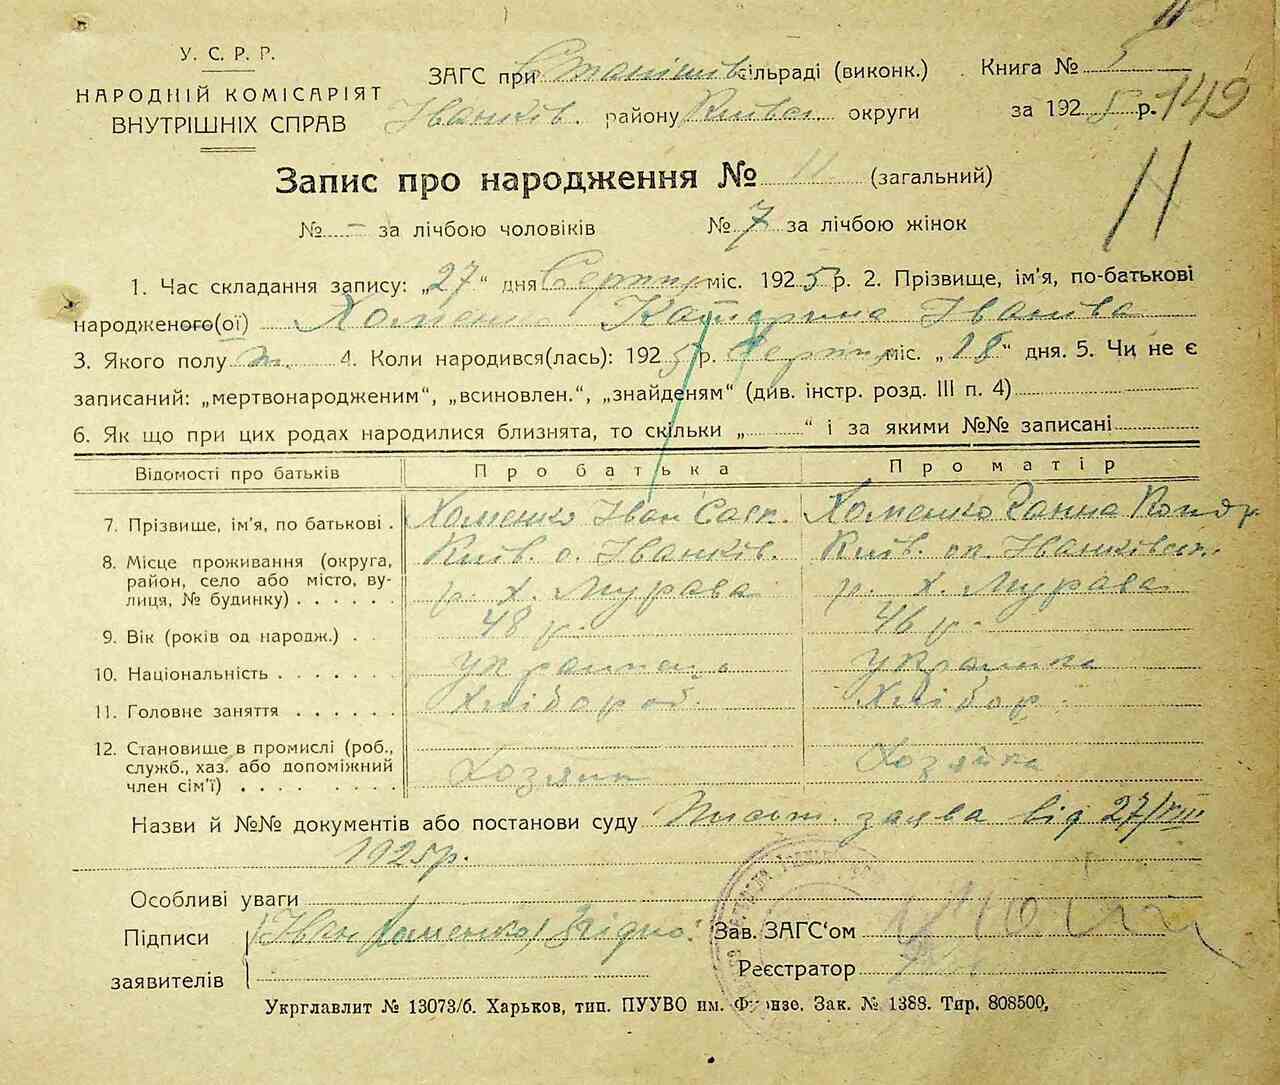 У. С. Р. Р.
НАРОДНІЙ КОМІСАРІЯТ
ВНУТРІШНІХ СПРАВ
ЗАГС при Станішів сільраді (виконк.) Книга № 5
Іванків. району Київс. округи за 1925 р. 149
Запис про народження № 11 (загальний)
11
№ - за лічбою чоловіків № 7 за лічбою жінок
1. Час складання запису: „27“ дня Серпня міс. 1925 р. 2. Прізвище, ім'я, по-батькові
народженого(ої) Хоменко Катерина Іванівна
3. Якого полу ж. 4. Коли народився(лась): 1925 р. Серпня міс. „18“ дня. 5. Чи не є
записаний: „мертвонародженим“, „всиновлен.“, „знайденям“ (див. інстр. розд. III п. 4)
6. Як що при цих родах народилися близнята, то скільки „ “ і за якими №№ записані
Відомості про батьків Про батька Про матір
7. Прізвище, ім'я, по батькові . Хоменко Іван Хоменко Ганна
8. Місце проживання (округа, район, село або місто, вулиця, № будинку) . . . . . . Київ. о. Іванків. р. х. Мурава Київ. ок. Іванківськ. р. х. Мурава
9. Вік (років од народж.) . . 48 р. 46 р.
10. Національність . . . . . . . українець українка
11. Головне заняття . . . . . . Хлібороб. Хлібор.
12. Становище в промислі (роб., служб., хаз. або допоміжний член сім'ї) . . . . . . . . Хозяїн Хозяйка
Назви й №№ документів або постанови суду Письм. заява від 27/VIII
1925 р.
Особливі уваги
Підписи Іван Хоменко Зав. ЗАГС'ом
заявителів Реєстратор
Укрглавлит № 13073/б. Харьков, тип. ПУУВО им. Фрунзе. Зак. № 1388. Тир. 808500,